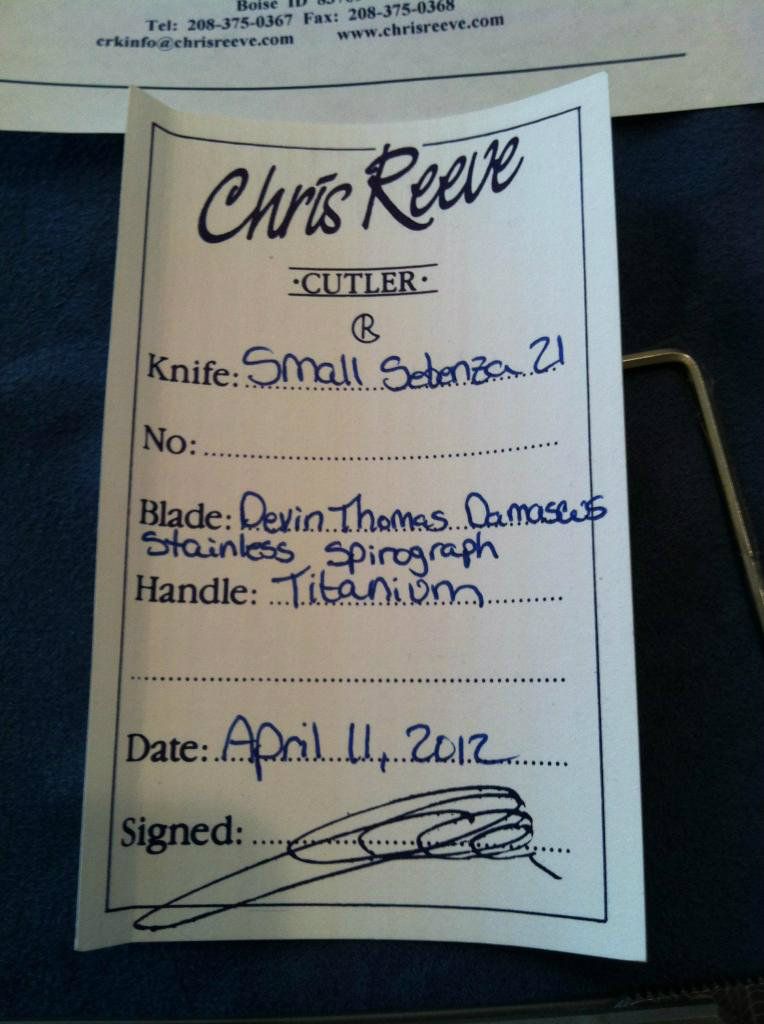 Boise ID
Tel: 208-375-0367 Fax: 208-375-0368
crkinfo@chrisreeve.com www.chrisreeve.com
Chris Reeve
·CUTLER·
R
Knife: Small Sebenza 21
No:
Blade: Devin Thomas Damascus
Stainless spirograph
Handle: Titanium
Date: April 11, 2012
Signed: